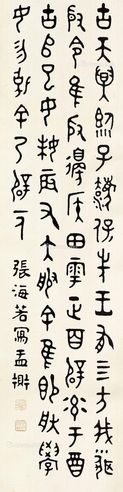 古天異臨子灋保先王有四方我聞
殷令隹殷邊侯田雩正百辟率于酉
古𠂤巳女妹辰又大服余隹即朕學
女勿剋余乃辟一人
張海若寫盂鼎